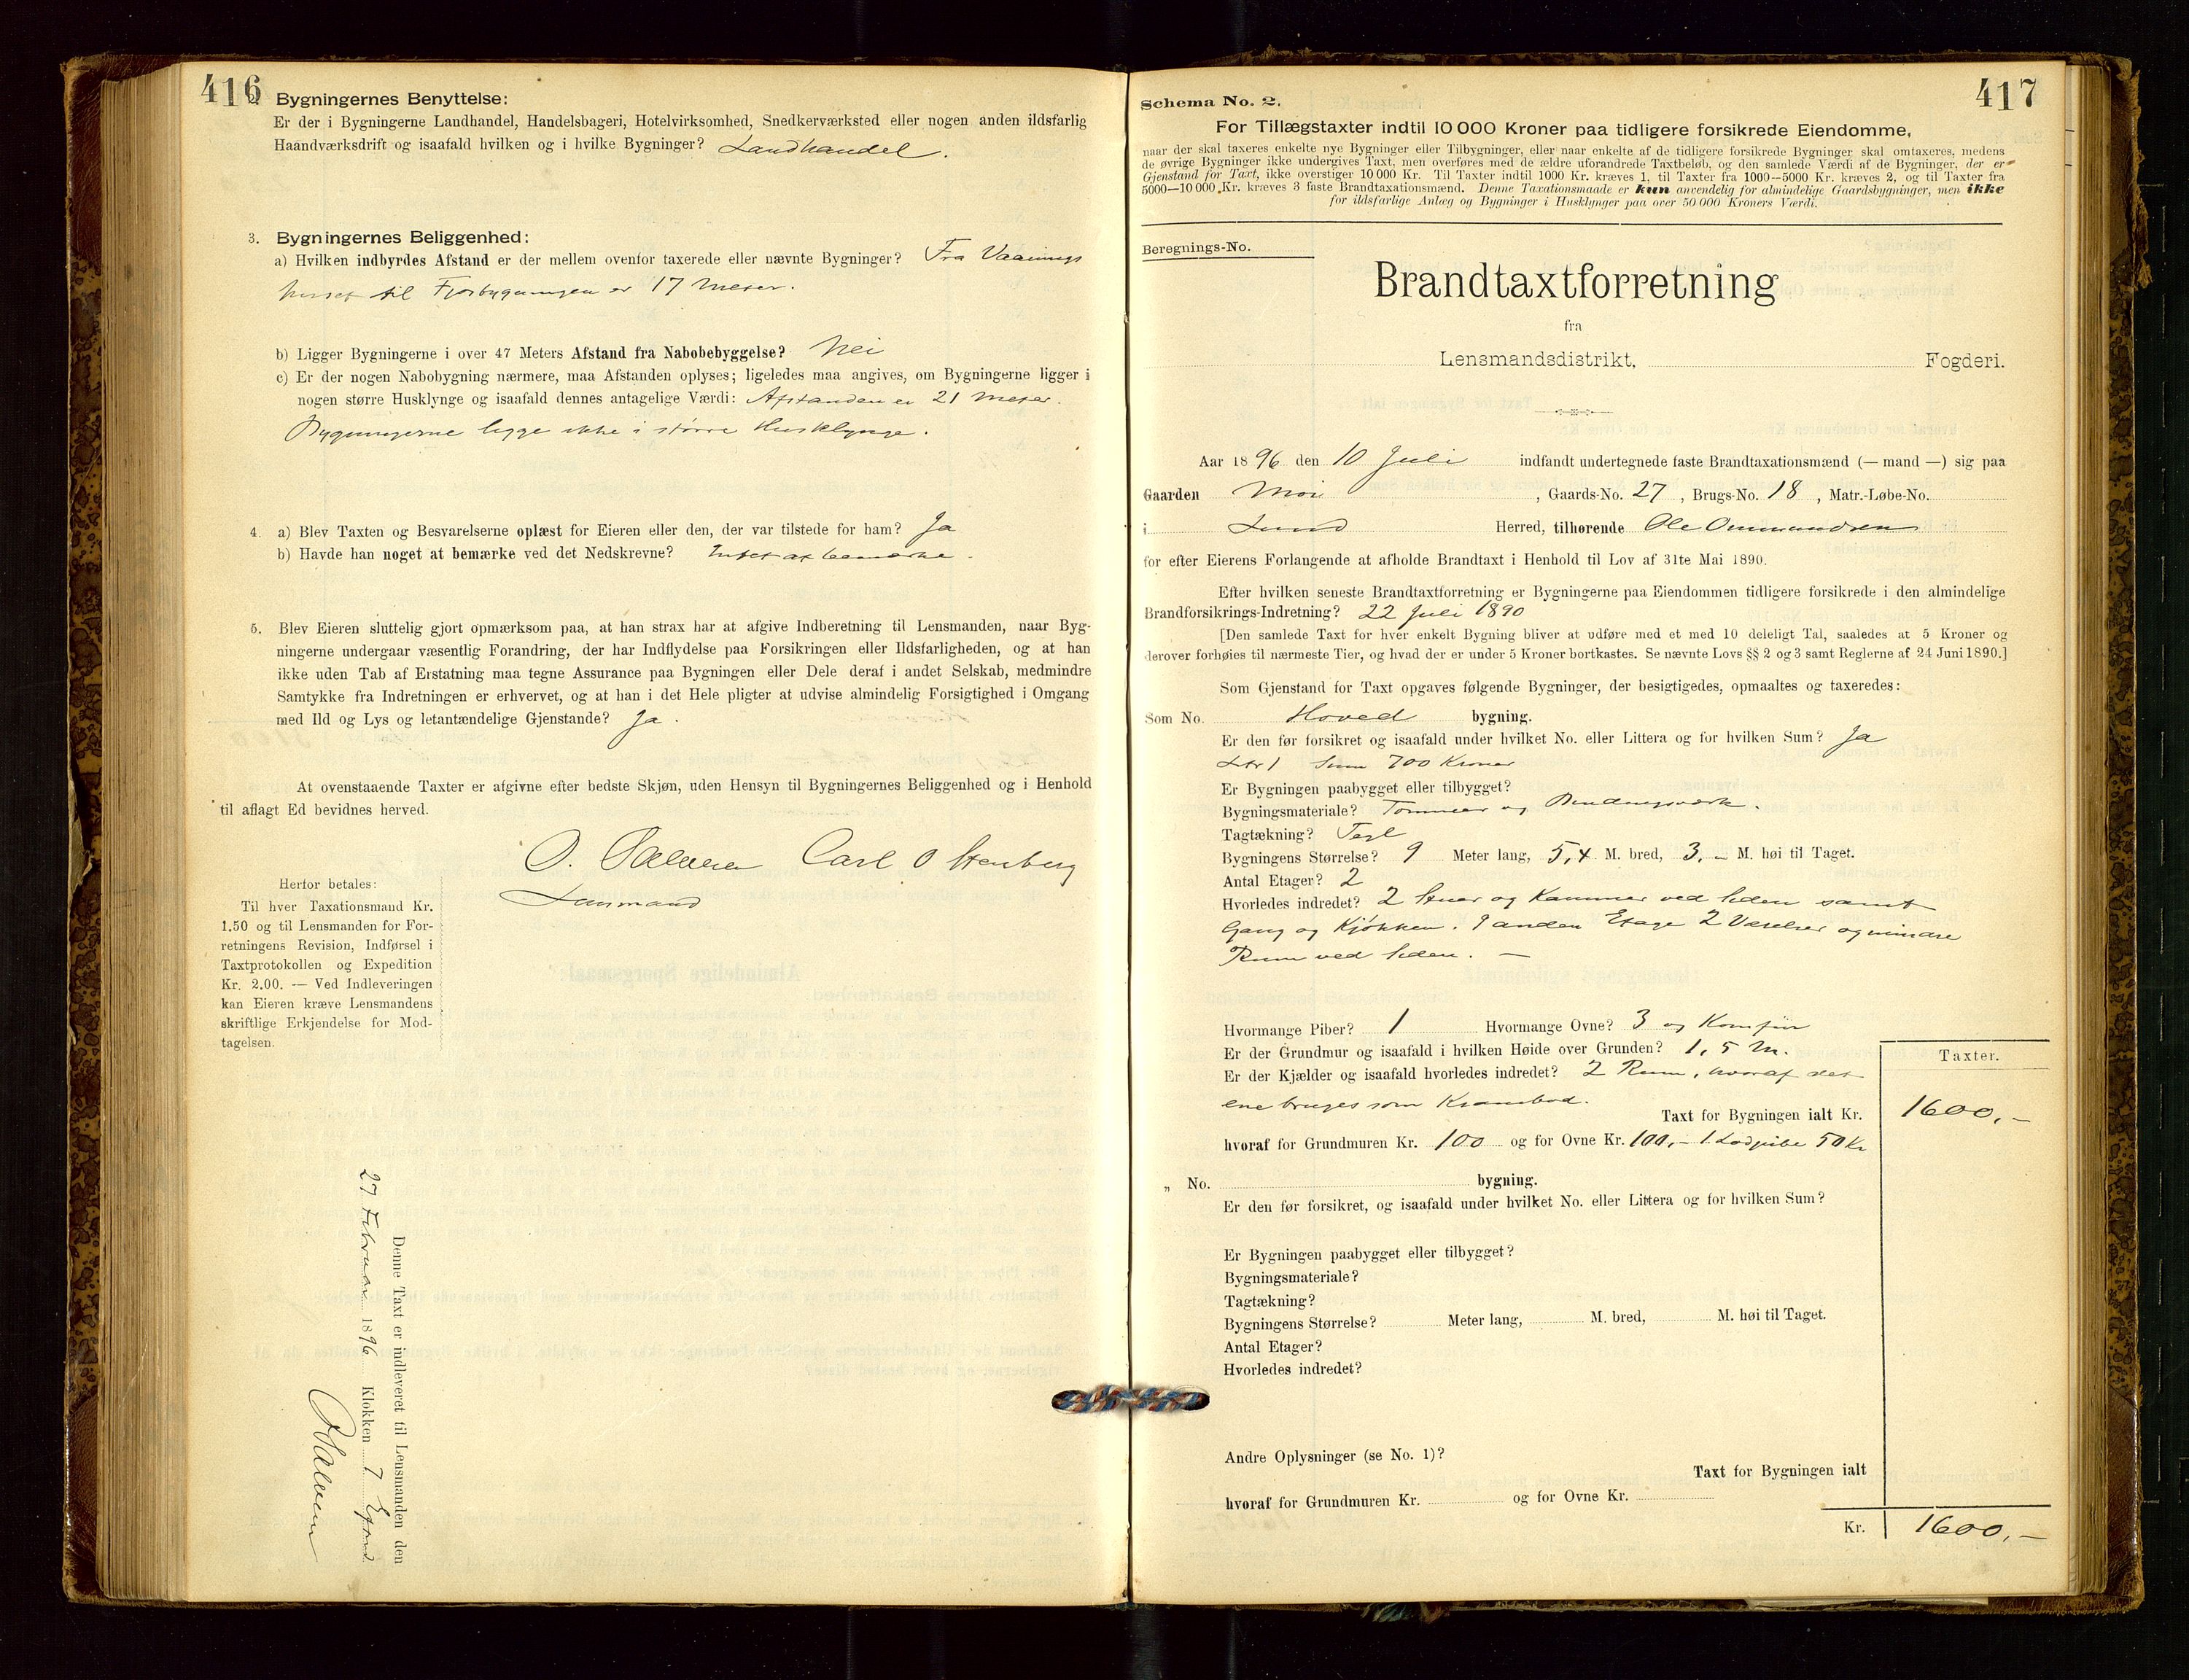 416
2. Bygningernes Benyttelse:
Er der i Bygningerne Landhandel, Handelsbageri, Hotelvirksomhed, Snedkerværksted eller nogen anden ildsfarlig
Haandværksdrift og isaafald hvilken og i hvilke Bygninger? Landhandel.
3. Bygningernes Beliggenhed:
a) Hvilken indbyrdes Afstand er der mellem ovenfor taxerede eller nævnte Bygninger? Fra Vaanings
huset til Fjøsbygningen er 17 Meter.
b) Ligger Bygningerne i over 47 Meters Afstand fra Nabobebyggelse? Nei
c) Er der nogen Nabobygning nærmere, maa Afstanden oplyses; ligeledes maa angives, om Bygningerne ligger i
nogen større Husklynge og isaafald dennes antagelige Værdi: Afstanden er 21 Meter.
Bygningerne ligge ikke i større Husklynge.
4. a) Blev Taxten og Besvarelserne oplæst for Eieren eller den, der var tilstede for ham? Ja
b) Havde han noget at bemærke ved det Nedskrevne? Intet at bemærke.
5. Blev Eieren sluttelig gjort opmærksom paa, at han strax har at afgive Indberetning til Lensmanden, naar Byg-
ningerne undergaar væsentlig Forandring, der har Indflydelse paa Forsikringen eller Ildsfarligheden, og at han
ikke uden Tab af Erstatning maa tegne Assurance paa Bygningen eller Dele deraf i andet Selskab, medmindre
Samtykke fra Indretningen er erhvervet, og at han i det Hele pligter at udvise almindelig Forsigtighed i Omgang
med Ild og Lys og letantændelige Gjenstande? Ja.
At ovenstaaende Taxter er afgivne efter bedste Skjøn, uden Hensyn til Bygningernes Beliggenhed og i Henhold
til aflagt Ed bevidnes herved.
Carl O Stenberg
Lensmand
Herfor betales:
Til hver Taxationsmand Kr.
1.50 og til Lensmanden for For-
retningens Revision, Indførsel i
Taxtprotokollen og Expedition
Kr. 2.00. — Ved Indleveringen
kan Eieren kræve Lensmandens
skriftlige Erkjendelse for Mod-
tagelsen.
Denne Taxt er indleveret til Lensmanden den
27 Februar 1896 Klokken 7 Efmd
417
Schema No. 2.
For Tillægstaxter indtil 10 000 Kroner paa tidligere forsikrede Eiendomme,
naar der skal taxeres enkelte nye Bygninger eller Tilbygninger, eller naar enkelte af de tidligere forsikrede Bygninger skal omtaxeres, medens
de øvrige Bygninger ikke undergives Taxt, men overføres med de ældre uforandrede Taxtbeløb, og den samlede Værdi af de Bygninger, der er
Gjenstand for Taxt, ikke overstiger 10 000 Kr. Til Taxter indtil 1000 Kr. kræves 1, til Taxter fra 1000—5000 Kr. kræves 2, og til Taxter fra
5000—10 000 Kr. kræves 3 faste Brandtaxationsmænd. Denne Taxationsmaade er kun anvendelig for almindelige Gaardsbygninger, men ikke
for ildsfarlige Anlæg og Bygninger i Husklynger paa over 50 000 Kroners Værdi.
Beregnings-No.
Brandtaxtforretning
fra
Lensmandsdistrikt, Fogderi.
Aar 1896 den 10 Juli indfandt undertegnede faste Brandtaxationsmænd (— mand —) sig paa
Gaarden Moi, Gaards-No. 27, Brugs-No. 18, Matr.-Løbe-No.
i Lund Herred, tilhørende Ole Ommundsen
for efter Eierens Forlangende at afholde Brandtaxt i Henhold til Lov af 31te Mai 1890.
Efter hvilken seneste Brandtaxtforretning er Bygningerne paa Eiendommen tidligere forsikrede i den almindelige
Brandforsikrings-Indretning? 22 Juli 1890
[Den samlede Taxt for hver enkelt Bygning bliver at udføre med et med 10 deleligt Tal, saaledes at 5 Kroner og
derover forhøies til nærmeste Tier, og hvad der er under 5 Kroner bortkastes. Se nævnte Lovs §§ 2 og 3 samt Reglerne af 24 Juni 1890.]
Som Gjenstand for Taxt opgaves følgende Bygninger, der besigtigedes, opmaaltes og taxeredes:
Som No. Hoved bygning.
Er den før forsikret og isaafald under hvilket No. eller Littera og for hvilken Sum? Ja
Litr 1 Sum 700 Kroner
Er Bygningen paabygget eller tilbygget?
Bygningsmateriale? Tømmer og Bindingsværk.
Tagtækning? Tegl
Bygningens Størrelse? 9 Meter lang, 5,4 M. bred, 3,- M. høi til Taget.
Antal Etager? 2
Hvorledes indredet? 2 Stuer og Kammer ved Siden samt
Gang og Kjøkken. I anden Etage 2 Værelser og mindre
Rum ved Siden. —
Hvormange Piber? 1 Hvormange Ovne? 3 og Komfur
Er der Grundmur og isaafald i hvilken Høide over Grunden? 1,5 M.
Er der Kjælder og isaafald hvorledes indredet? 2 Rum, hvoraf det
ene bruges som Krambod.
Taxter.
Taxt for Bygningen ialt Kr. 1600,-
hvoraf for Grundmuren Kr. 100 og for Ovne Kr. 100,- 1 Lodpibe 50 Kr
„ No. bygning.
Er den før forsikret, og isaafald under hvilket No. eller Littera og for hvilken Sum?
Er Bygningen paabygget eller tilbygget?
Bygningsmateriale?
Tagtækning?
Bygningens Størrelse? Meter lang, M. bred, M. høi til Taget.
Antal Etager?
Hvorledes indredet?
Andre Oplysninger (se No. 1)?
Taxt for Bygningen ialt
hvoraf for Grundmuren Kr. og for Ovne Kr.
Kr. 1600,-